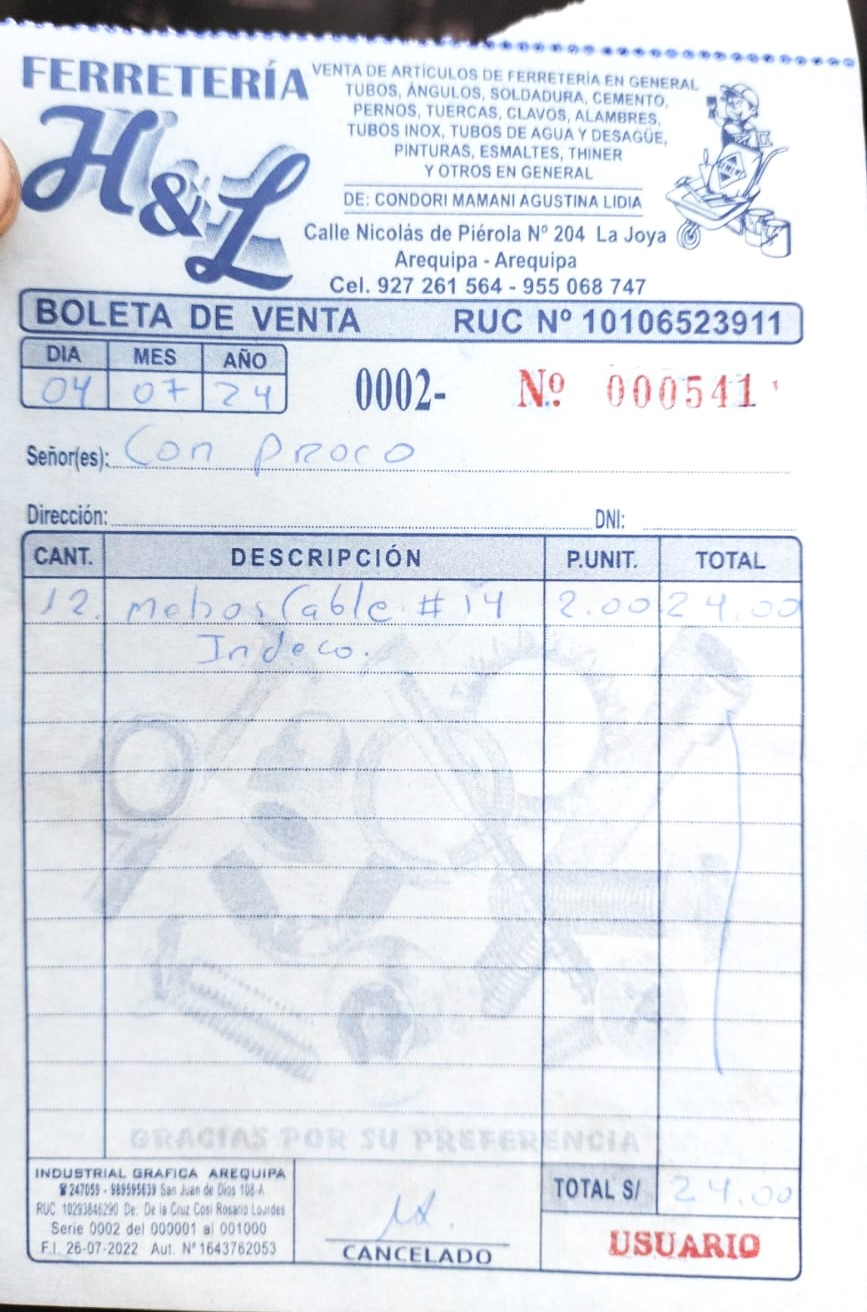 FERRETERÍA
H&L
VENTA DE ARTÍCULOS DE FERRETERÍA EN GENERAL
TUBOS, ÁNGULOS, SOLDADURA, CEMENTO,
PERNOS, TUERCAS, CLAVOS, ALAMBRES,
TUBOS INOX, TUBOS DE AGUA Y DESAGÜE,
PINTURAS, ESMALTES, THINER
Y OTROS EN GENERAL
DE: CONDORI MAMANI AGUSTINA LIDIA
Calle Nicolás de Piérola Nº 204 La Joya
Arequipa - Arequipa
Cel. 927 261 564 - 955 068 747
BOLETA DE VENTA RUC Nº 10106523911
DIA MES AÑO
04 07 24
0002- Nº 000541
Señor(es): Con proco
Dirección: DNI:
CANT. DESCRIPCIÓN P.UNIT. TOTAL
12. Cable #14 2.00 24.00
Indeco.
GRACIAS POR SU PREFERENCIA
INDUSTRIAL GRAFICA AREQUIPA
247055 - 989595639 San Juan de Dios 108-A
RUC 10293846290 De: De la Cruz Cosi Rosario Lourdes
Serie 0002 del 000001 al 001000
F.I. 26-07-2022 Aut. Nº 1643762053
CANCELADO
TOTAL S/ 24.00
USUARIO